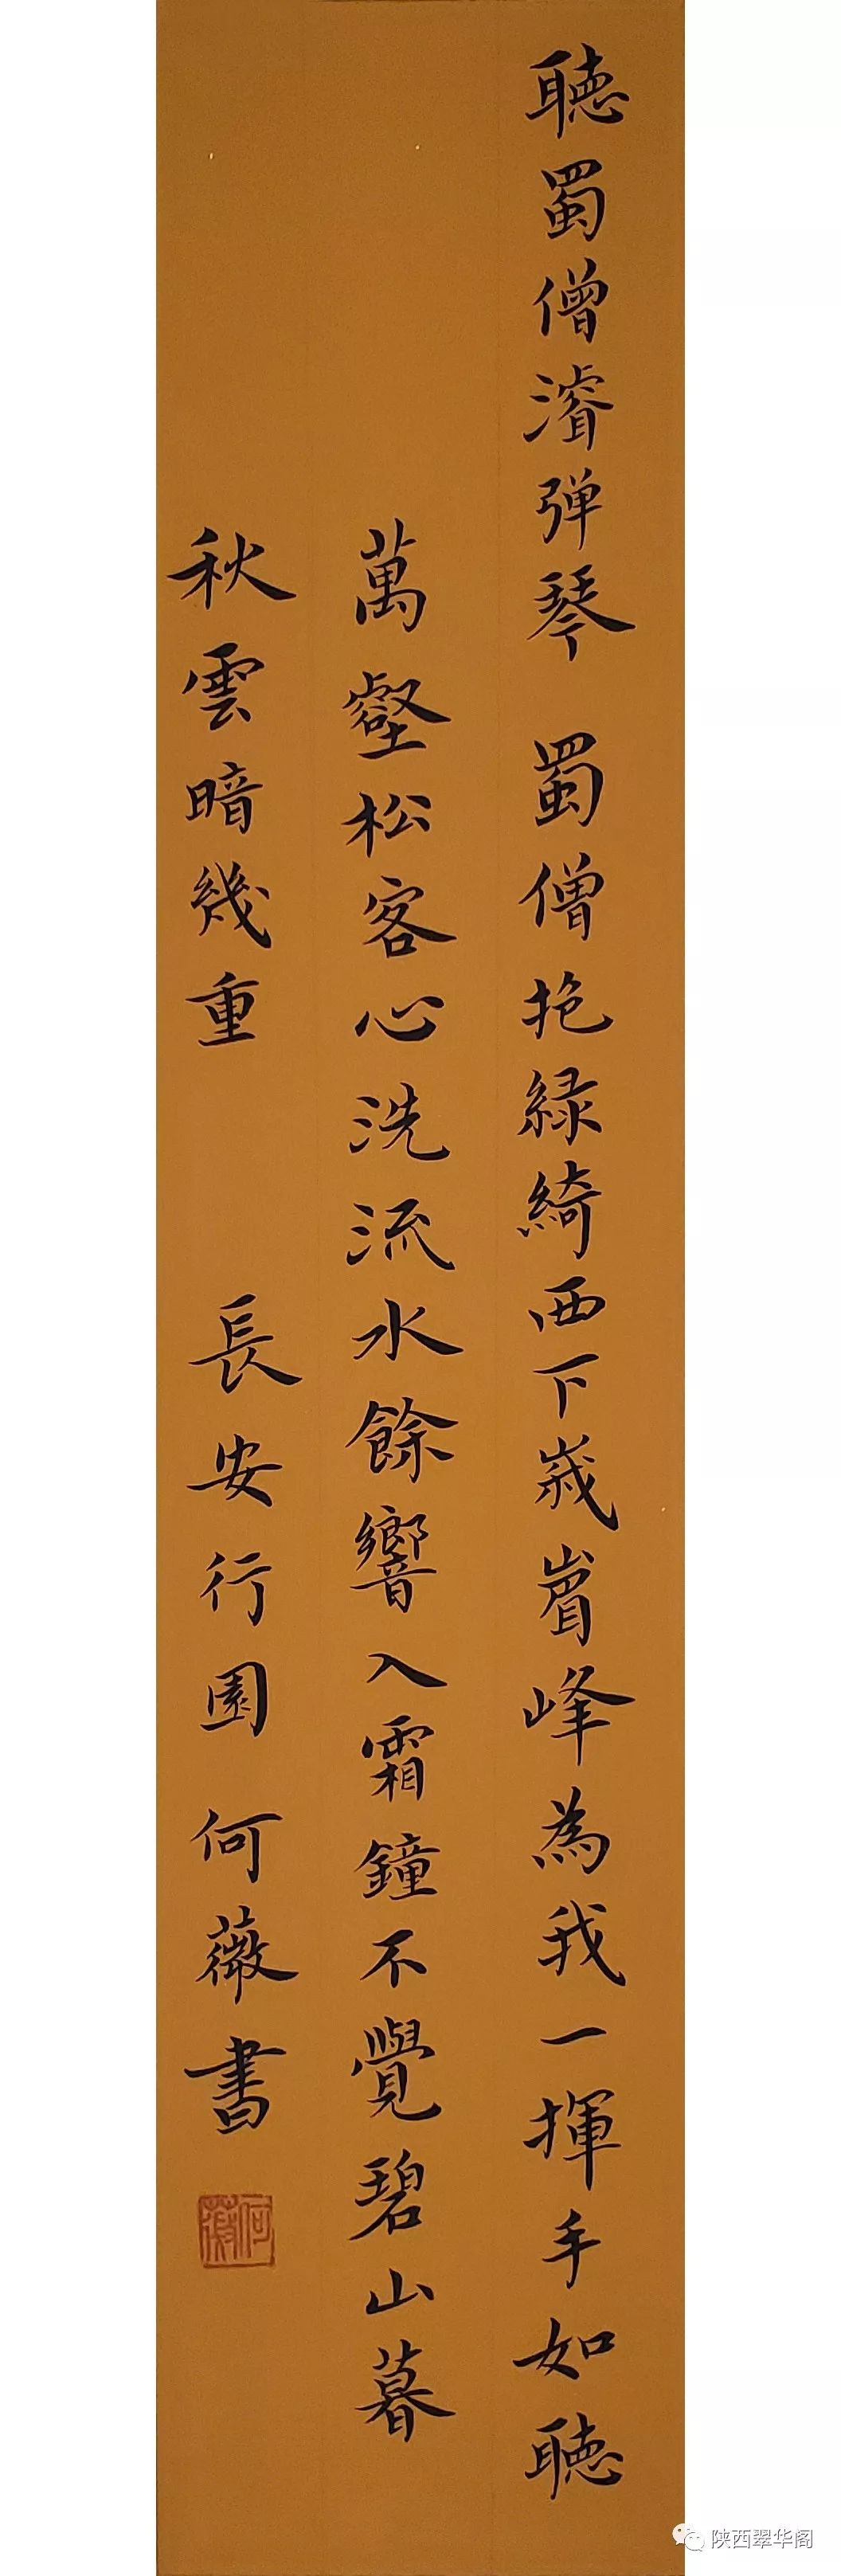 聽蜀僧濬弹琴 蜀僧抱緑綺西下峩眉峰為我一揮手如聽
萬壑松客心洗流水餘響入霜鐘不覺碧山暮
秋雲暗幾重 長安行園何薇書
何薇
陕西翠华阁